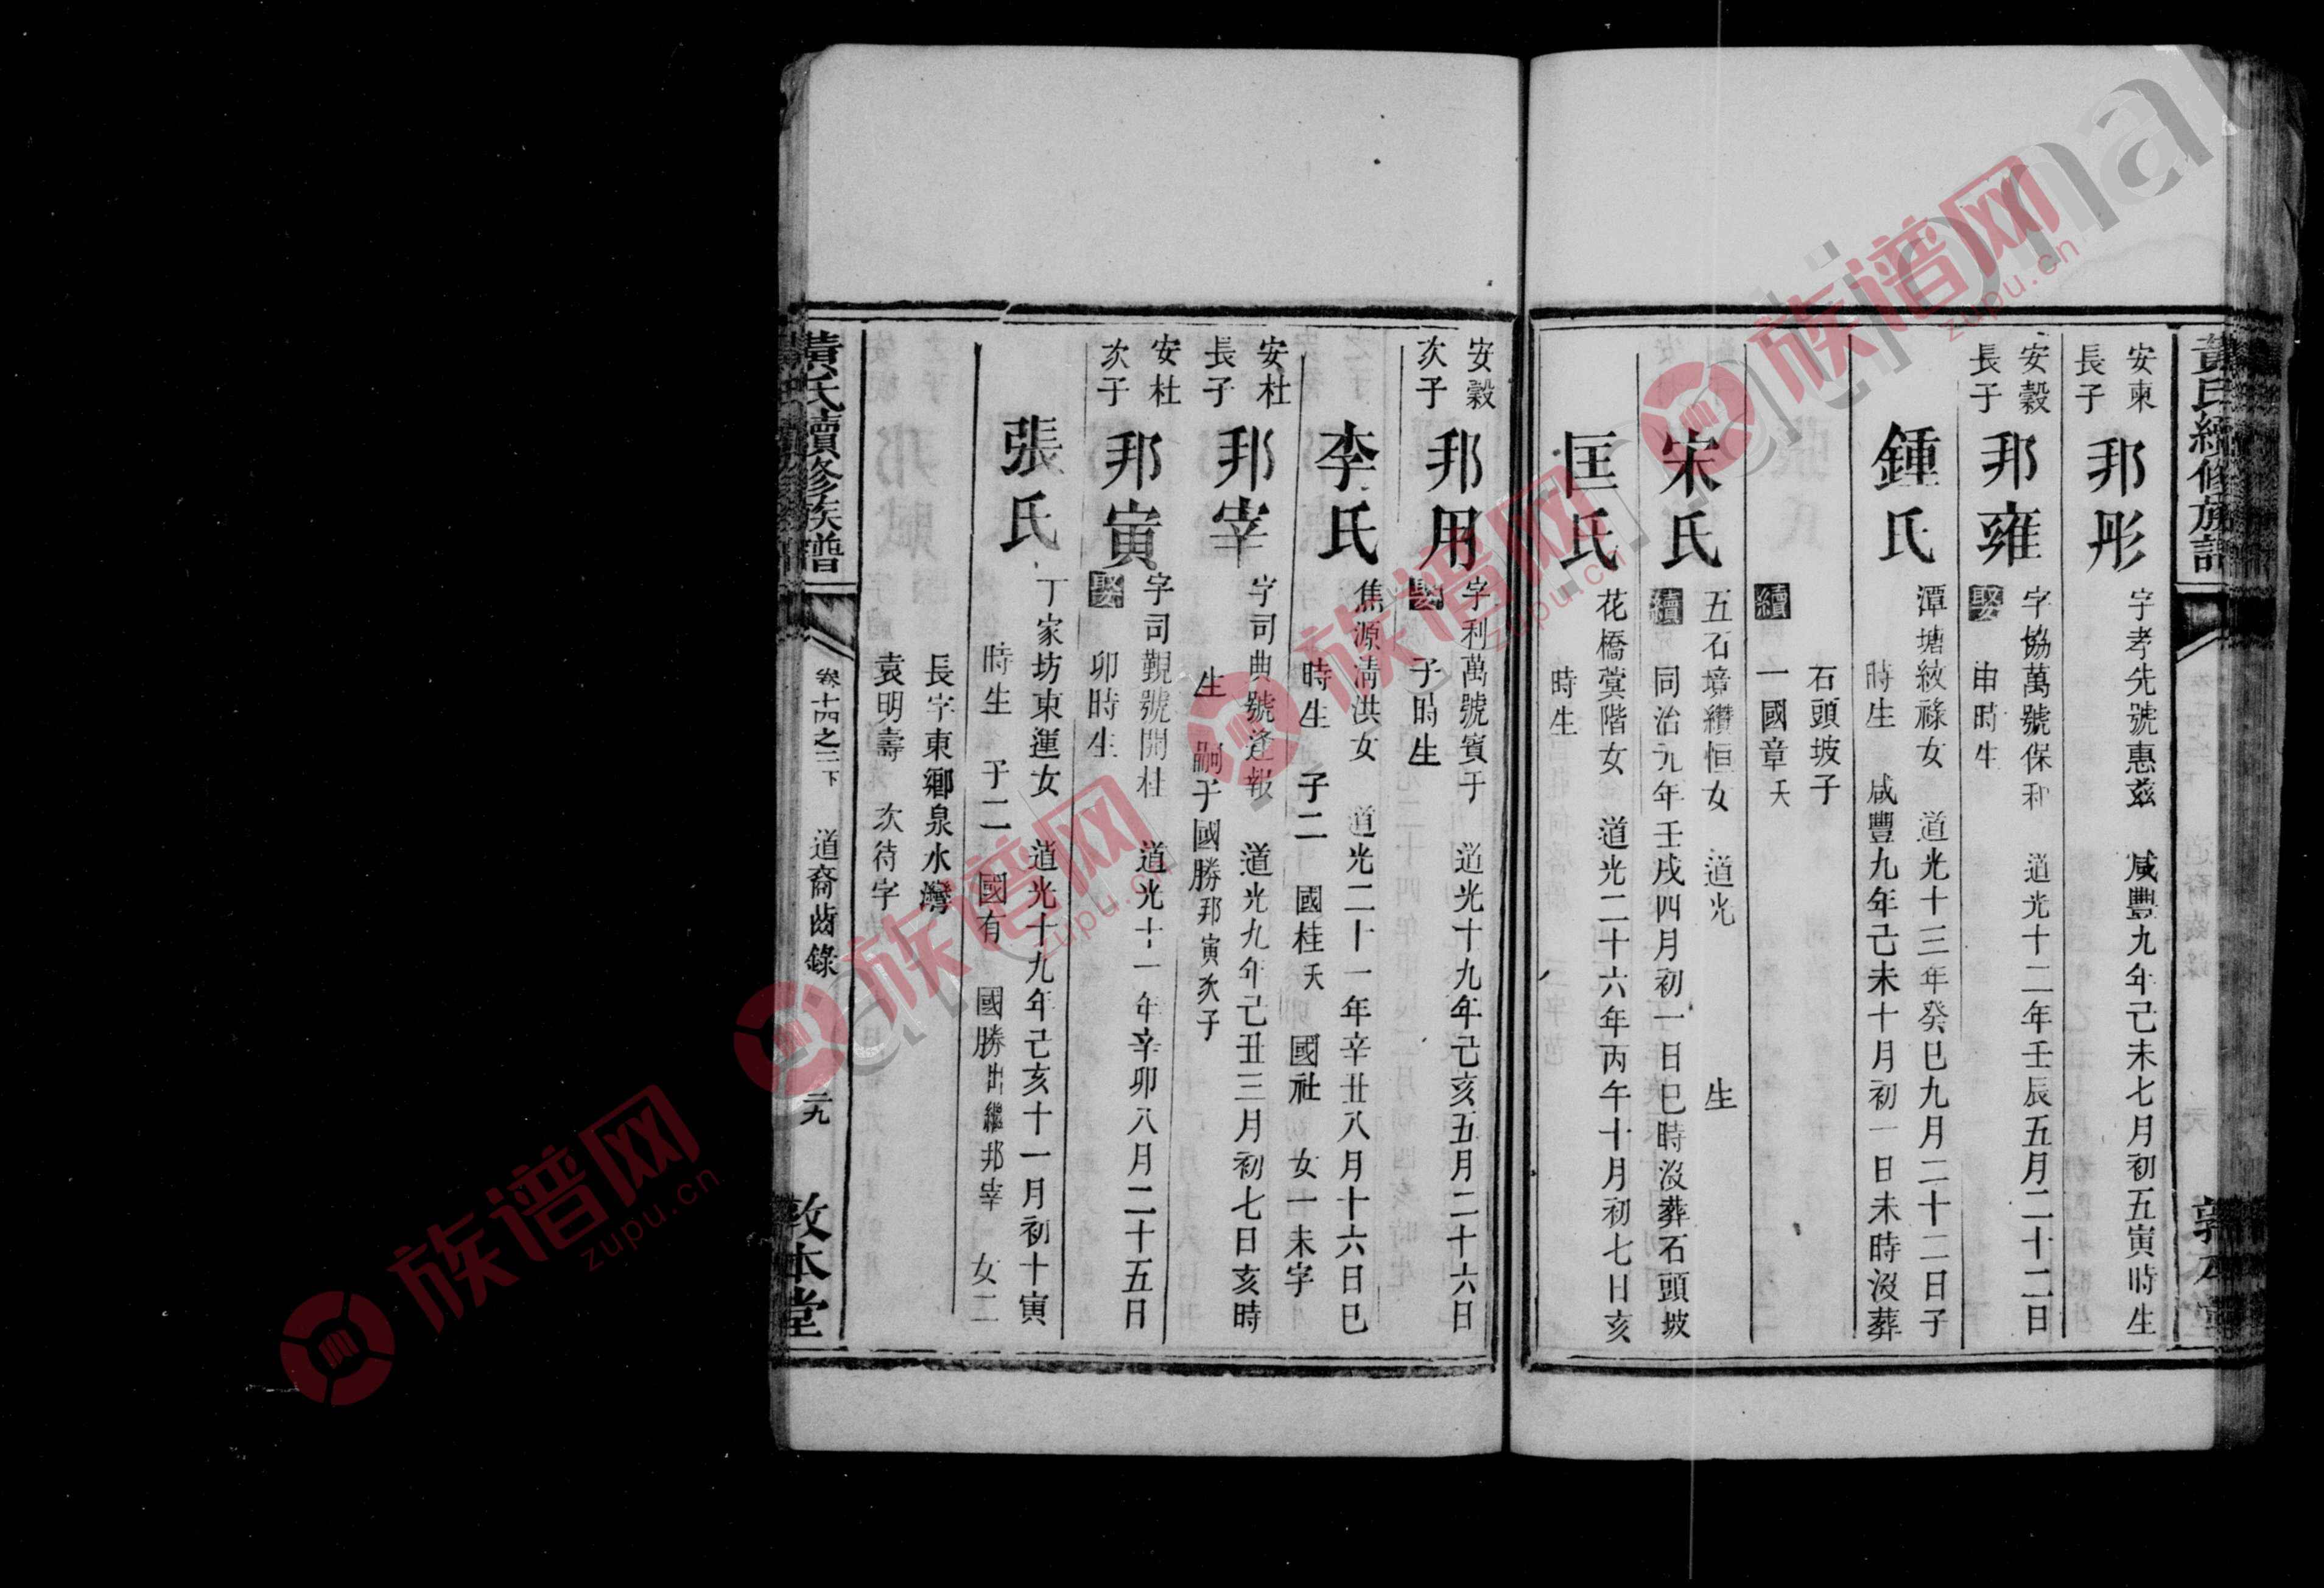 黃氏續修族譜
敦本堂
安東
長子
邦彤
字孝先號惠茲 咸豐九年己未七月初五寅時生
安穀
長子
邦雍
字協萬號保和 道光十二年壬辰五月二十二日
娶 申時生
鍾氏
潭塘紋祿女 道光十三年癸巳九月二十二日子
時生 咸豐九年己未十月初一日未時沒葬
石頭坡子
續 一國章夭
宋氏
五石境纘恒女 道光 生
續 同治元年壬戌四月初一日巳時沒葬石頭坡
匡氏
花橋蓂階女 道光二十六年丙午十月初七日亥
時生
安穀
次子
邦用
字利萬號賓于 道光十九年己亥五月二十六日
娶 子時生
李氏
焦源清洪女 道光二十一年辛丑八月十六日巳
時生 子二 國桂夭 國社 女一未字
安杜
長子
邦宰
字司典號逢報 道光九年己丑三月初七日亥時
生 嗣子國勝邦寅次子
安杜
次子
邦寅
字司覲號開杜 道光十一年辛卯八月二十五日
娶 卯時生
張氏
丁家坊東運女 道光十九年己亥十一月初十寅
時生 子二 國有 國勝出繼邦宰 女二
長字東鄉泉水灣
袁明壽 次待字
黃氏續修族譜
卷十四之二下
道裔齒錄
二九
敦本堂
族谱网
zupu.cn
族谱网
zupu.cn
族谱网
zupu.cn
族谱网
zupu.cn